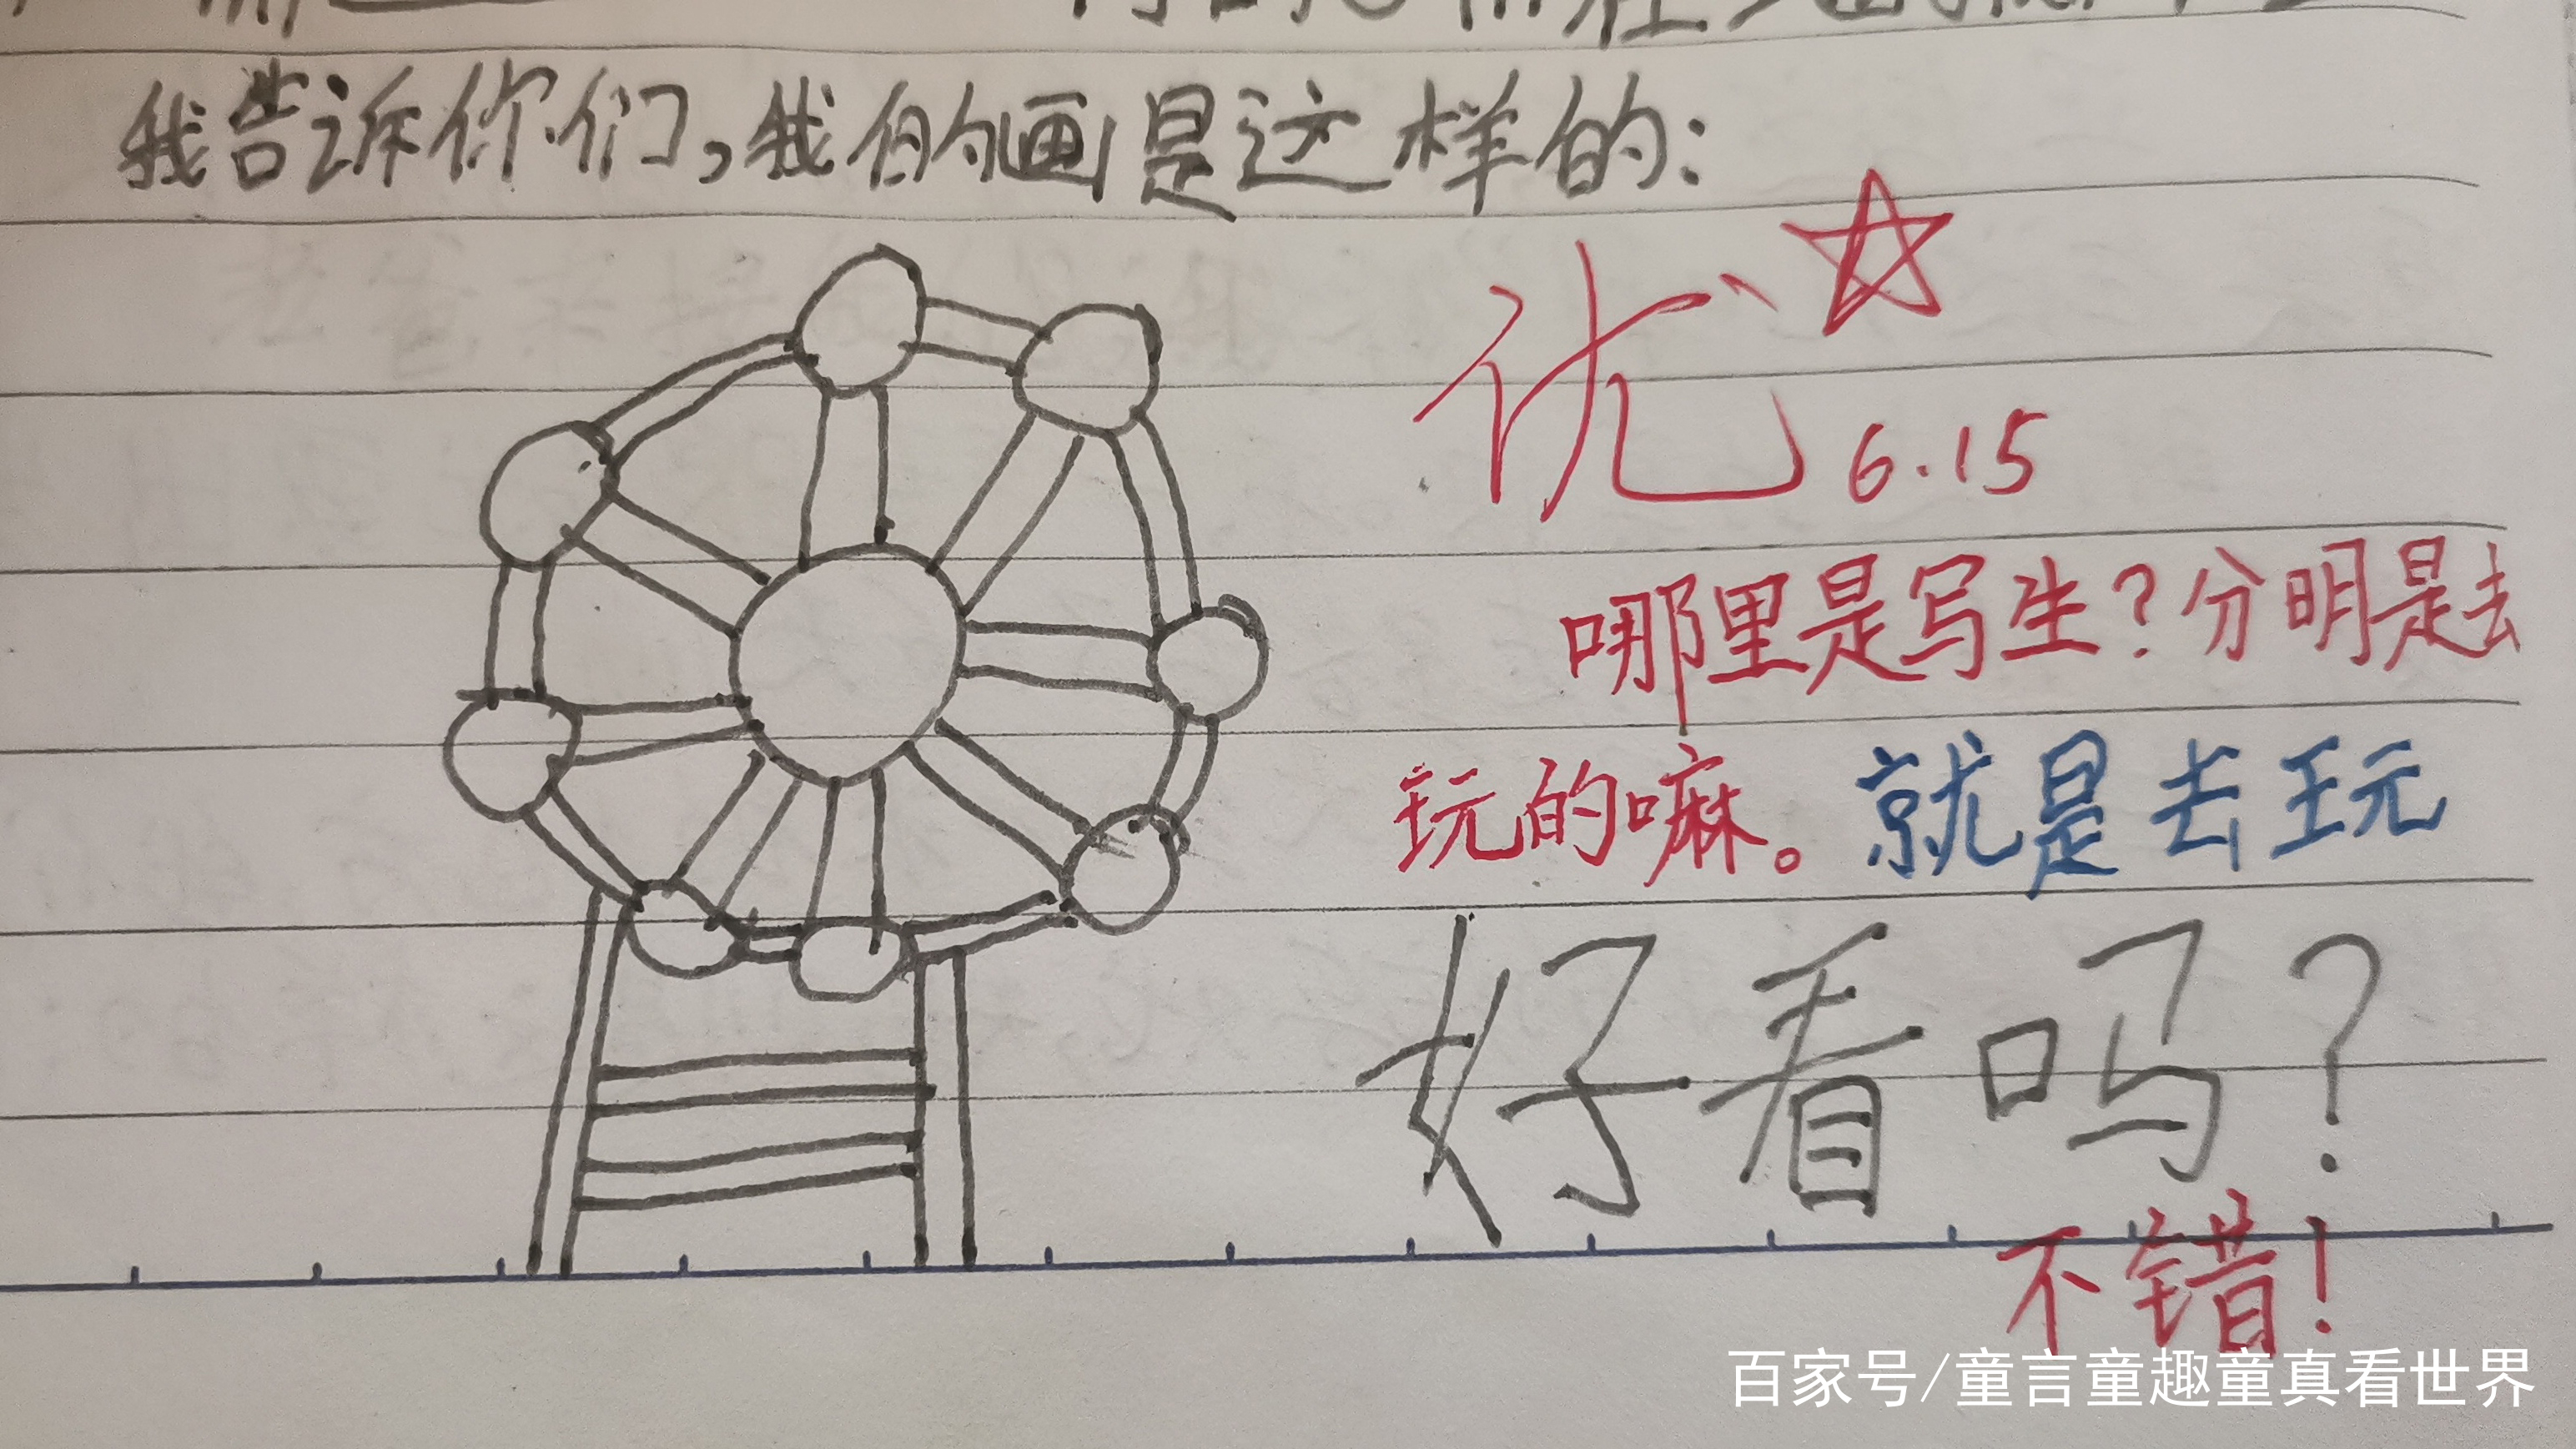 我告诉你们,我的画是这样的:
优
6.15
哪里是写生?分明是去
玩的嘛。就是去玩
好看吗?
不错!
百家号/童言童趣童真看世界